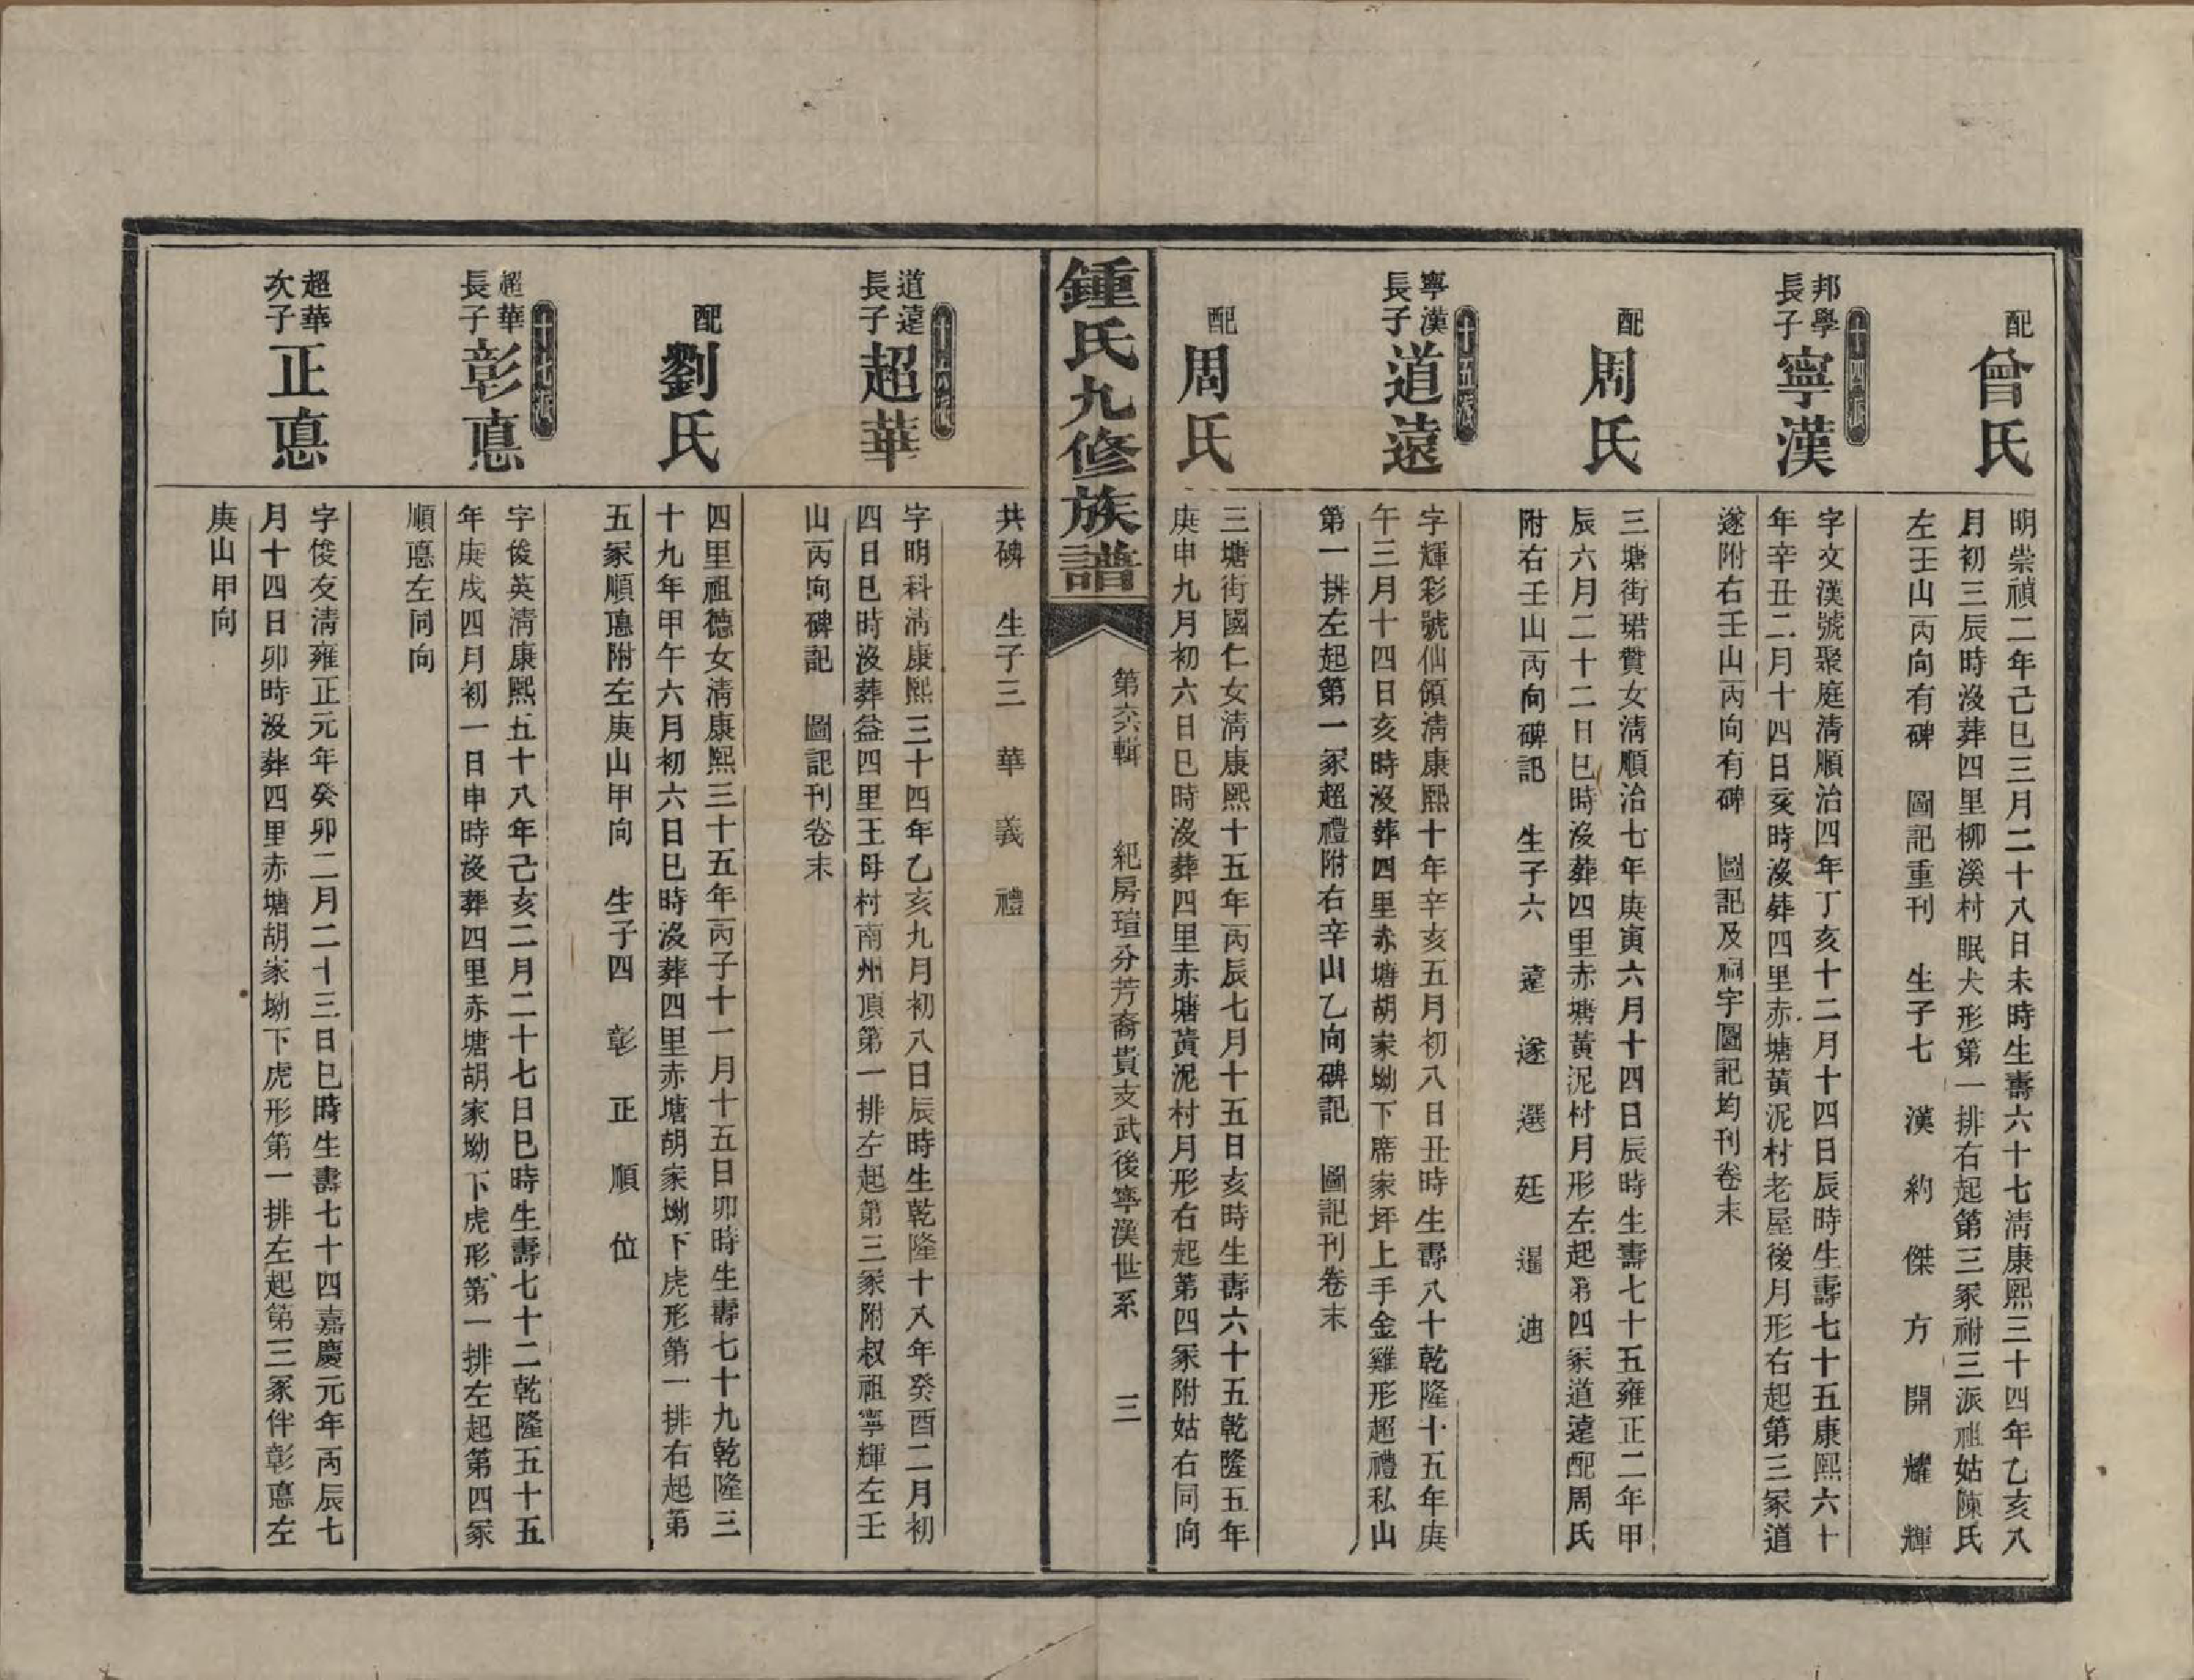 配
曾氏
明崇禎二年己巳三月二十八日未時生壽六十七清康熙三十四年乙亥八
月初三辰時沒葬四里柳溪村眠犬形第一排右起第三冢祔三派祖姑陳氏
左壬山丙向有碑 圖記重刊 生子七 漢 約 傑 方 開 耀 輝
十四派
邦學
長子
寧漢
字文漢號聚庭清順治四年丁亥十二月十四日辰時生壽七十五康熙六十
年辛丑二月十四日亥時沒葬四里赤塘黃泥村老屋後月形右起第三冢道
遂附右壬山丙向有碑 圖記及祠宇圖記均刊卷末
配
周氏
三塘街珺贊女清順治七年庚寅六月十四日辰時生壽七十五雍正二年甲
辰六月二十二日巳時沒葬四里赤塘黃泥村月形左起第四冢道遠配周氏
附右壬山丙向碑記 生子六 遠 遂 選 廷 暹 迪
十五派
寧漢
長子
道遠
字輝彩號仙領清康熙十年辛亥五月初八日丑時生壽八十乾隆十五年庚
午三月十四日亥時沒葬四里赤塘胡家坳下席家坪上手金雞形超禮私山
第一排左起第一冢超禮附右辛山乙向碑記 圖記刊卷末
配
周氏
三塘街國仁女清康熙十五年丙辰七月十五日亥時生壽六十五乾隆五年
庚申九月初六日巳時沒葬四里赤塘黃泥村月形右起第四冢附姑右同向
鍾氏九修族譜
第六輯 紀房瑄分芳裔貴支武後寧漢世系 三
共碑 生子三 華 義 禮
十六派
道遠
長子
超華
字明科清康熙三十四年乙亥九月初八日辰時生乾隆十八年癸酉二月初
四日巳時沒葬益四里王母村南州頂第一排左起第三冢附叔祖寧輝左壬
山丙向碑記 圖記刊卷末
配
劉氏
四里祖德女清康熙三十五年丙子十一月十五日卯時生壽七十九乾隆三
十九年甲午六月初六日巳時沒葬四里赤塘胡家坳下虎形第一排右起第
五冢順悳附左庚山甲向 生子四 彰 正 順 位
十七派
超華
長子
彰悳
字俊英清康熙五十八年己亥二月二十七日巳時生壽七十二乾隆五十五
年庚戌四月初一日申時沒葬四里赤塘胡家坳下虎形第一排左起第四冢
順悳左同向
超華
次子
正悳
字俊友清雍正元年癸卯二月二十三日巳時生壽七十四嘉慶元年丙辰七
月十四日卯時沒葬四里赤塘胡家坳下虎形第一排左起第三冢伴彰悳左
庚山甲向